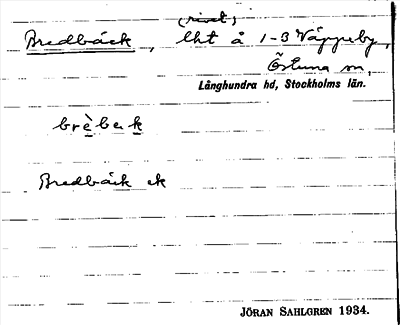 (rivet)
Bredbäck, lht å 1-3 Väppeby,
Östuna sn,
Långhundra hd, Stockholms län.
brèbεk
Bredbäck ek
JÖRAN SAHLGREN 1934.